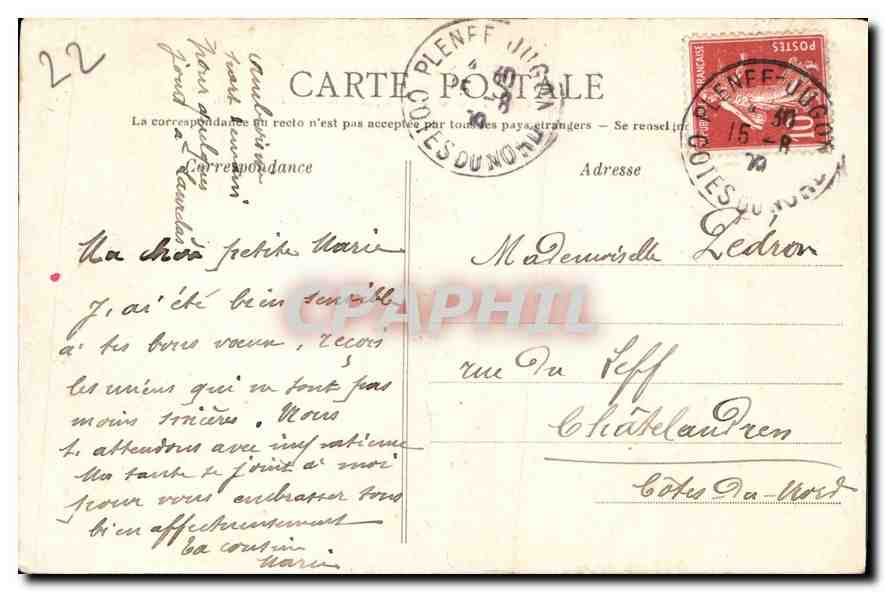 22
CARTE POSTALE
La correspondance au recto n'est pas acceptée par tous les pays étrangers - Se renseign
Correspondance
Adresse
PLENEE-JUGON
COTES DU NORD
PLENEE-JUGON
15 - 8
COTES DU NORD
POSTES
10
part demain
pour quelques
jours à Lourdes
Ma petite Marie
J'ai été bien sensible
à tes bons voeux, reçois
les miens qui ne sont pas
moins sincères. Nous
t'attendons avec impatience
Ma tante se joint à moi
pour vous embrasser tous
bien affectueusement
Ta cousine
Marie
Mademoiselle Lédron
rue du Leff
Châtelaudren
Côtes-du-Nord
CPAPHIL